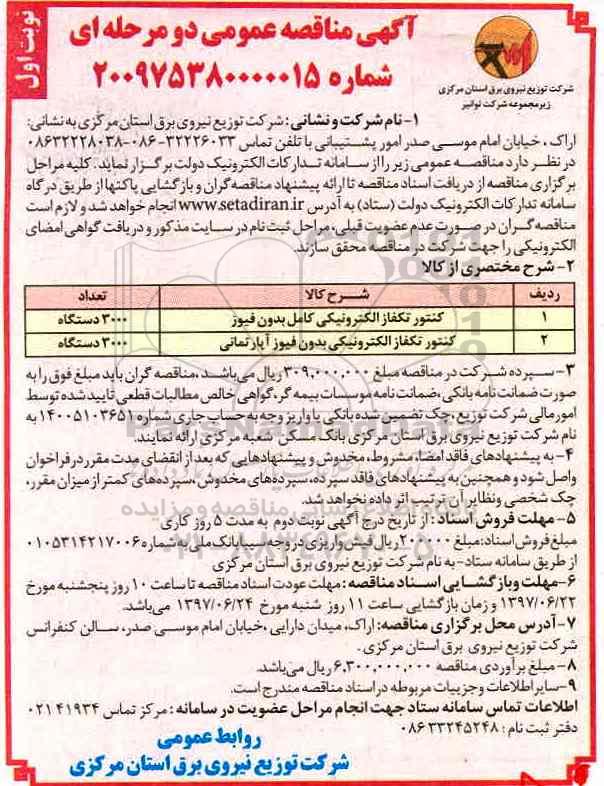 نوبت اول
آگهی مناقصه عمومی دو مرحله ای
شماره ۲۰۰۹۷۵۳۸۰۰۰۰۰۱۵
شرکت توزیع نیروی برق استان مرکزی
زیرمجموعه شرکت توانیر
۱- نام شرکت و نشانی : شرکت توزیع نیروی برق استان مرکزی به نشانی:
اراک ، خیابان امام موسی صدر امور پشتیبانی با تلفن تماس ۳۲۲۲۶۰۳۳-۰۸۶-۰۸۶۳۲۲۲۸۰۳۸
در نظر دارد مناقصه عمومی زیر را از سامانه تدارکات الکترونیک دولت برگزار نماید. کلیه مراحل
برگزاری مناقصه از دریافت اسناد مناقصه تا ارائه پیشنهاد مناقصه گران و بازگشایی پاکتها از طریق درگاه
سامانه تدارکات الکترونیک دولت (ستاد) به آدرس www.setadiran.ir انجام خواهد شد و لازم است
مناقصه گران در صورت عدم عضویت قبلی، مراحل ثبت نام در سایت مذکور و دریافت گواهی امضای
الکترونیکی را جهت شرکت در مناقصه محقق سازند.
۲- شرح مختصری از کالا
ردیف شرح کالا تعداد
۱ کنتور تکفاز الکترونیکی کامل بدون فیوز ۳۰۰۰ دستگاه
۲ کنتور تکفاز الکترونیکی بدون فیوز آپارتمانی ۳۰۰۰ دستگاه
۳- سپرده شرکت در مناقصه مبلغ ۳۰۹,۰۰۰,۰۰۰ ریال می باشد ،مناقصه گران باید مبلغ فوق را به
صورت ضمانت نامه بانکی ،ضمانت نامه موسسات بیمه گر، گواهی خالص مطالبات قطعی تایید شده توسط
امور مالی شرکت توزیع، چک تضمین شده بانکی یا واریز وجه به حساب جاری شماره ۱۴۰۰۵۱۰۳۶۵۱ به
نام شرکت توزیع نیروی برق استان مرکزی بانک مسکن شعبه مرکزی ارائه نمایند.
۴- به پیشنهادهای فاقد امضا، مشروط، مخدوش و پیشنهادهایی که بعد از انقضای مدت مقرر در فراخوان
واصل شود و همچنین به پیشنهادهای فاقد سپرده، سپرده های مخدوش، سپرده های کمتر از میزان مقرر،
چک شخصی و نظایر آن ترتیب اثر داده نخواهد شد.
۵- مهلت فروش اسناد : از تاریخ درج آگهی نوبت دوم به مدت ۵ روز کاری
مبلغ فروش اسناد: مبلغ ۲۰۰,۰۰۰ ریال فیش واریزی در وجه سیبا بانک ملی به شماره ۰۱۰۵۳۱۴۲۱۷۰۰۶
از طریق سامانه ستاد- به نام شرکت توزیع نیروی برق استان مرکزی
۶- مهلت و بازگشایی اسناد مناقصه : مهلت عودت اسناد مناقصه تا ساعت ۱۰ روز پنجشنبه مورخ
۱۳۹۷/۰۶/۲۲ و زمان بازگشایی ساعت ۱۱ روز شنبه مورخ ۱۳۹۷/۰۶/۲۴ می باشد.
۷- آدرس محل برگزاری مناقصه: اراک، میدان دارایی ،خیابان امام موسی صدر، سالن کنفرانس
شرکت توزیع نیروی برق استان مرکزی .
۸- مبلغ برآوردی مناقصه ۶,۳۰۰,۰۰۰,۰۰۰ ریال می باشد.
۹- سایر اطلاعات و جزییات مربوطه در اسناد مناقصه مندرج است.
اطلاعات تماس سامانه ستاد جهت انجام مراحل عضویت در سامانه : مرکز تماس ۴۱۹۳۴ ۰۲۱
دفتر ثبت نام : ۳۳۲۴۵۲۴۸ ۰۸۶
روابط عمومی
شرکت توزیع نیروی برق استان مرکزی